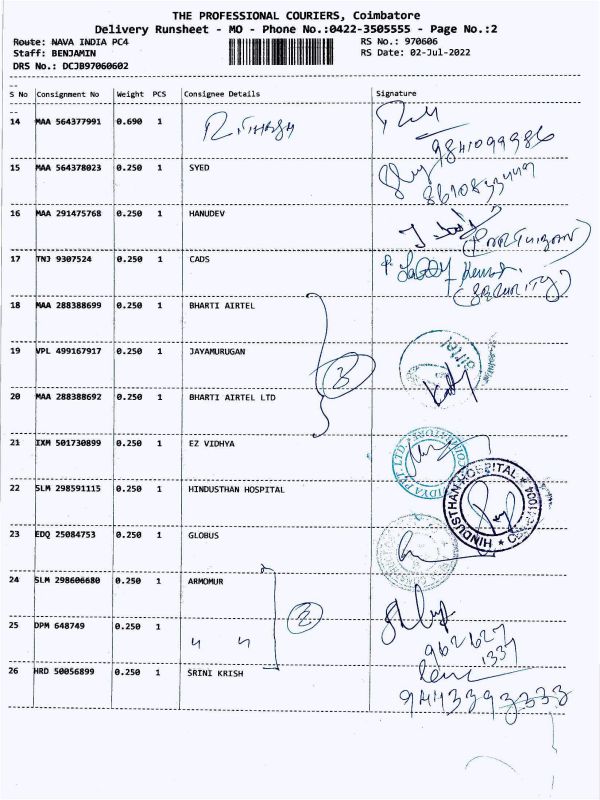 THE PROFESSIONAL COURIERS, Coimbatore
Delivery Runsheet - MO - Phone No.:0422-3505555 - Page No.:2
Route: NAVA INDIA PC4 RS No.: 970606
Staff: BENJAMIN RS Date: 02-Jul-2022
DRS No.: DCJB97060602
S No Consignment No Weight PCS Consignee Details Signature
14 MAA 564377991 0.690 1
9841099986
15 MAA 564378023 0.250 1 SYED
16 MAA 291475768 0.250 1 HANUDEV
17 TNJ 9307524 0.250 1 CADS
(SECURITY)
18 MAA 288388699 0.250 1 BHARTI AIRTEL
19 VPL 499167917 0.250 1 JAYAMURUGAN
3
airtel
20 MAA 288388692 0.250 1 BHARTI AIRTEL LTD
21 IXM 501730899 0.250 1 EZ VIDHYA
22 SLM 298591115 0.250 1 HINDUSTHAN HOSPITAL
HINDUSTHAN HOSPITAL
23 EDQ 25084753 0.250 1 GLOBUS
24 SLM 298606680 0.250 1 ARMOMUR
2
25 DPM 648749 0.250 1 " "
962627
1337
26 HRD 50056899 0.250 1 SRINI KRISH